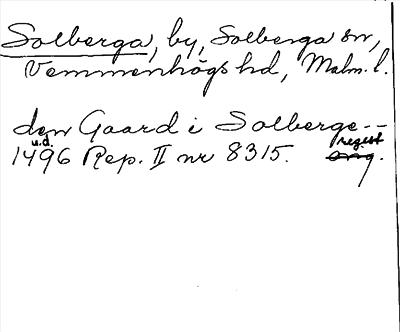 Solberga, by, Solberga sn,
Vemmenhögs hd, Malm. l.
den Gaard i Solberge --
u.d. regest
1496 Rep. II nr 8315. orig.